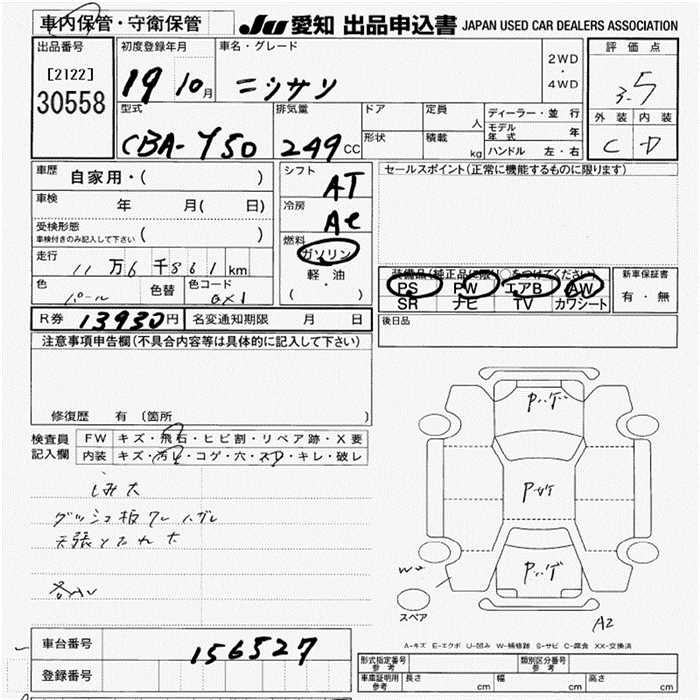 車内保管・守衛保管
JU 愛知 出品申込書 JAPAN USED CAR DEALERS ASSOCIATION
出品番号
[2122]
30558
初度登録年月
19 10月
車名・グレード
ニッサン
2WD
・
4WD
評価点
3.5
外装 内装
C D
型式
CBA-Y50
排気量
249CC
ドア
形状
定員
人
積載
kg
ディーラー・並行
モデル年式 年
ハンドル 左・右
車歴
自家用・( )
車検
年 月( 日)
受検形態
車検付きのみ記入して下さい ( )
走行
11万6千861km
色
パール
色替
色コード
シフト
AT
冷房
AC
燃料
ガソリン
軽・油
( ・ )
セールスポイント(正常に機能するものに限ります)
装備品(純正品に限り○をつけてください)
PS PW エアB AW
SR ナビ TV カワシート
新車保証書
有・無
R券 13930円
名変通知期限 月 日
後日品
注意事項申告欄(不具合内容等は具体的に記入して下さい)
修復歴 有 〔箇所 〕
検査員
記入欄
FW キズ・飛石・ヒビ割・リペア跡・X要
内装 キズ・汚レ・コゲ・穴・スレ・キレ・破レ
シミ大
天張
Pハゲ
Pハゲ
Pハゲ
W2
A2
スペア
A-キズ E-エクボ U-凹み W-補修跡 S-サビ C-腐食 XX-交換済
車台番号
156527
登録番号
形式指定番号
参考
類別区分番号
参考
車庫証明用
参考
長さ cm
幅 cm
高さ cm